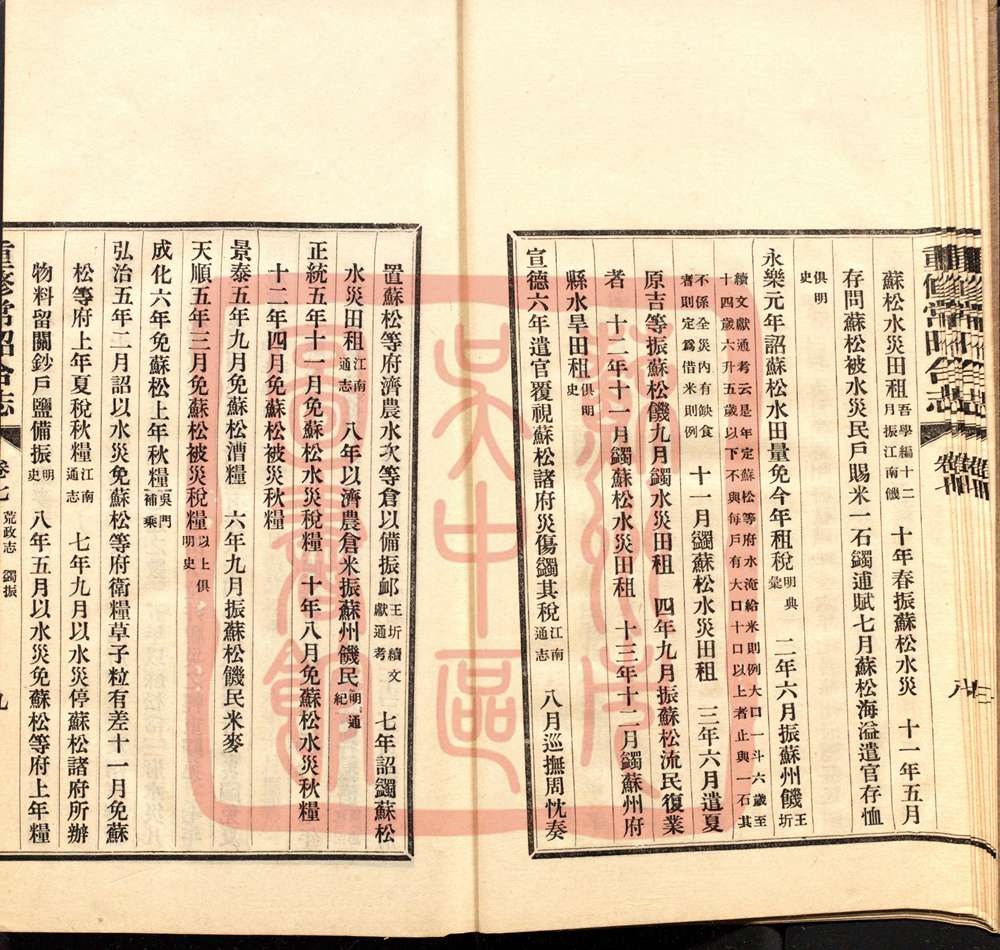 蘇松水災田租吾學編十二月振江南饑　十年春振蘇松水災　十一年五月
存問蘇松被水災民戶賜米一石蠲逋賦七月蘇松海溢遣官存恤
俱明史
永樂元年詔蘇松水田量免今年租稅明典彙　二年六月振蘇州饑王圻
續文獻通考云是年定蘇松等府水淹給米則例大口一斗六歲至
十四歲六升五歲以下不與每戶有大口十口以上者止與一石其
不係全災內有缺食者則定爲借米則例　十一月蠲蘇松水災田租　三年六月遣夏
原吉等振蘇松饑九月蠲水災田租　四年九月振蘇松流民復業
者　十二年十一月蠲蘇松水災田租　十三年十二月蠲蘇州府
縣水旱田租俱明史
宣德六年遣官覆視蘇松諸府災傷蠲其稅江南通志　八月巡撫周忱奏
置蘇松等府濟農水次等倉以備振卹王圻續文獻通考　七年詔蠲蘇松
水災田租江南通志　八年以濟農倉米振蘇州饑民明通紀
正統五年十一月免蘇松水災稅糧　十年八月免蘇松水災秋糧
十二年四月免蘇松被災秋糧
景泰五年九月免蘇松漕糧　六年九月振蘇松饑民米麥
天順五年三月免蘇松被災稅糧以上俱明史
成化六年免蘇松上年秋糧吳門補乘
弘治五年二月詔以水災免蘇松等府衛糧草子粒有差十一月免蘇
松等府上年夏稅秋糧江南通志　七年九月以水災停蘇松諸府所辦
物料留關鈔戶鹽備振明史　八年五月以水災免蘇松等府上年糧
重修常昭合志
卷七
荒政志　蠲振
九